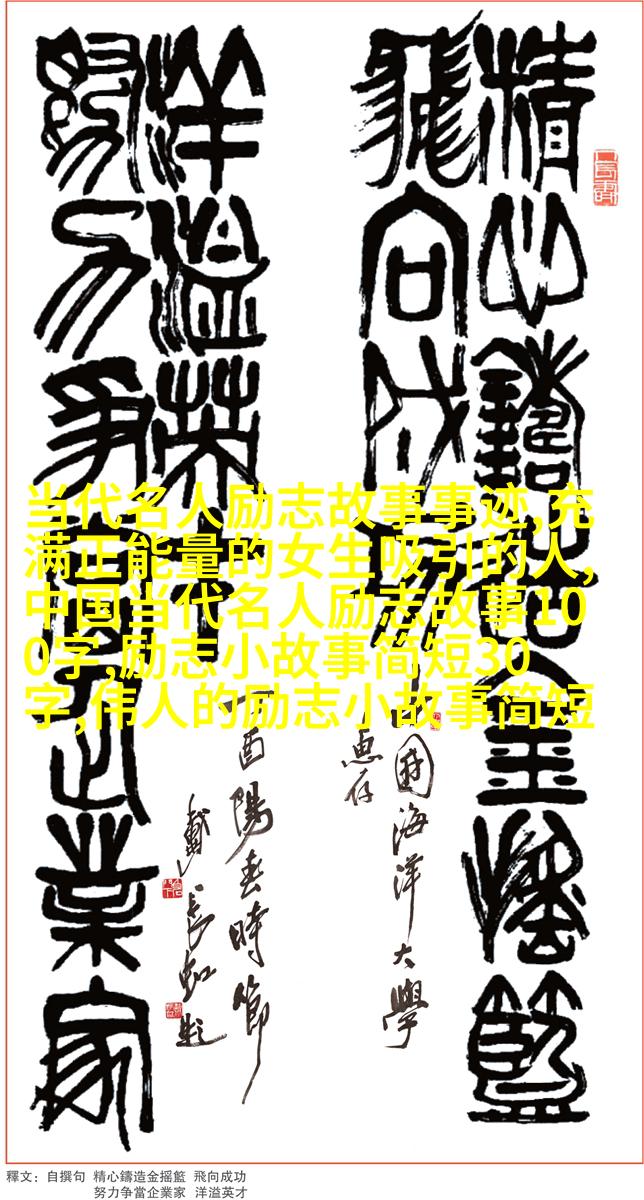 精心鑄造金搖籃
飛向成功
中國海洋大學
惠存
洋溢英才
努力爭當企業家
丁酉陽春時節
戴長虹題
当代名人励志故事事迹,充
满正能量的女生吸引的人,
中国当代名人励志故事10
0字,励志小故事简短30
字,伟人的励志小故事简短
釋文：自撰句 精心鑄造金摇籃 飛向成功
努力争當企業家 洋溢英才